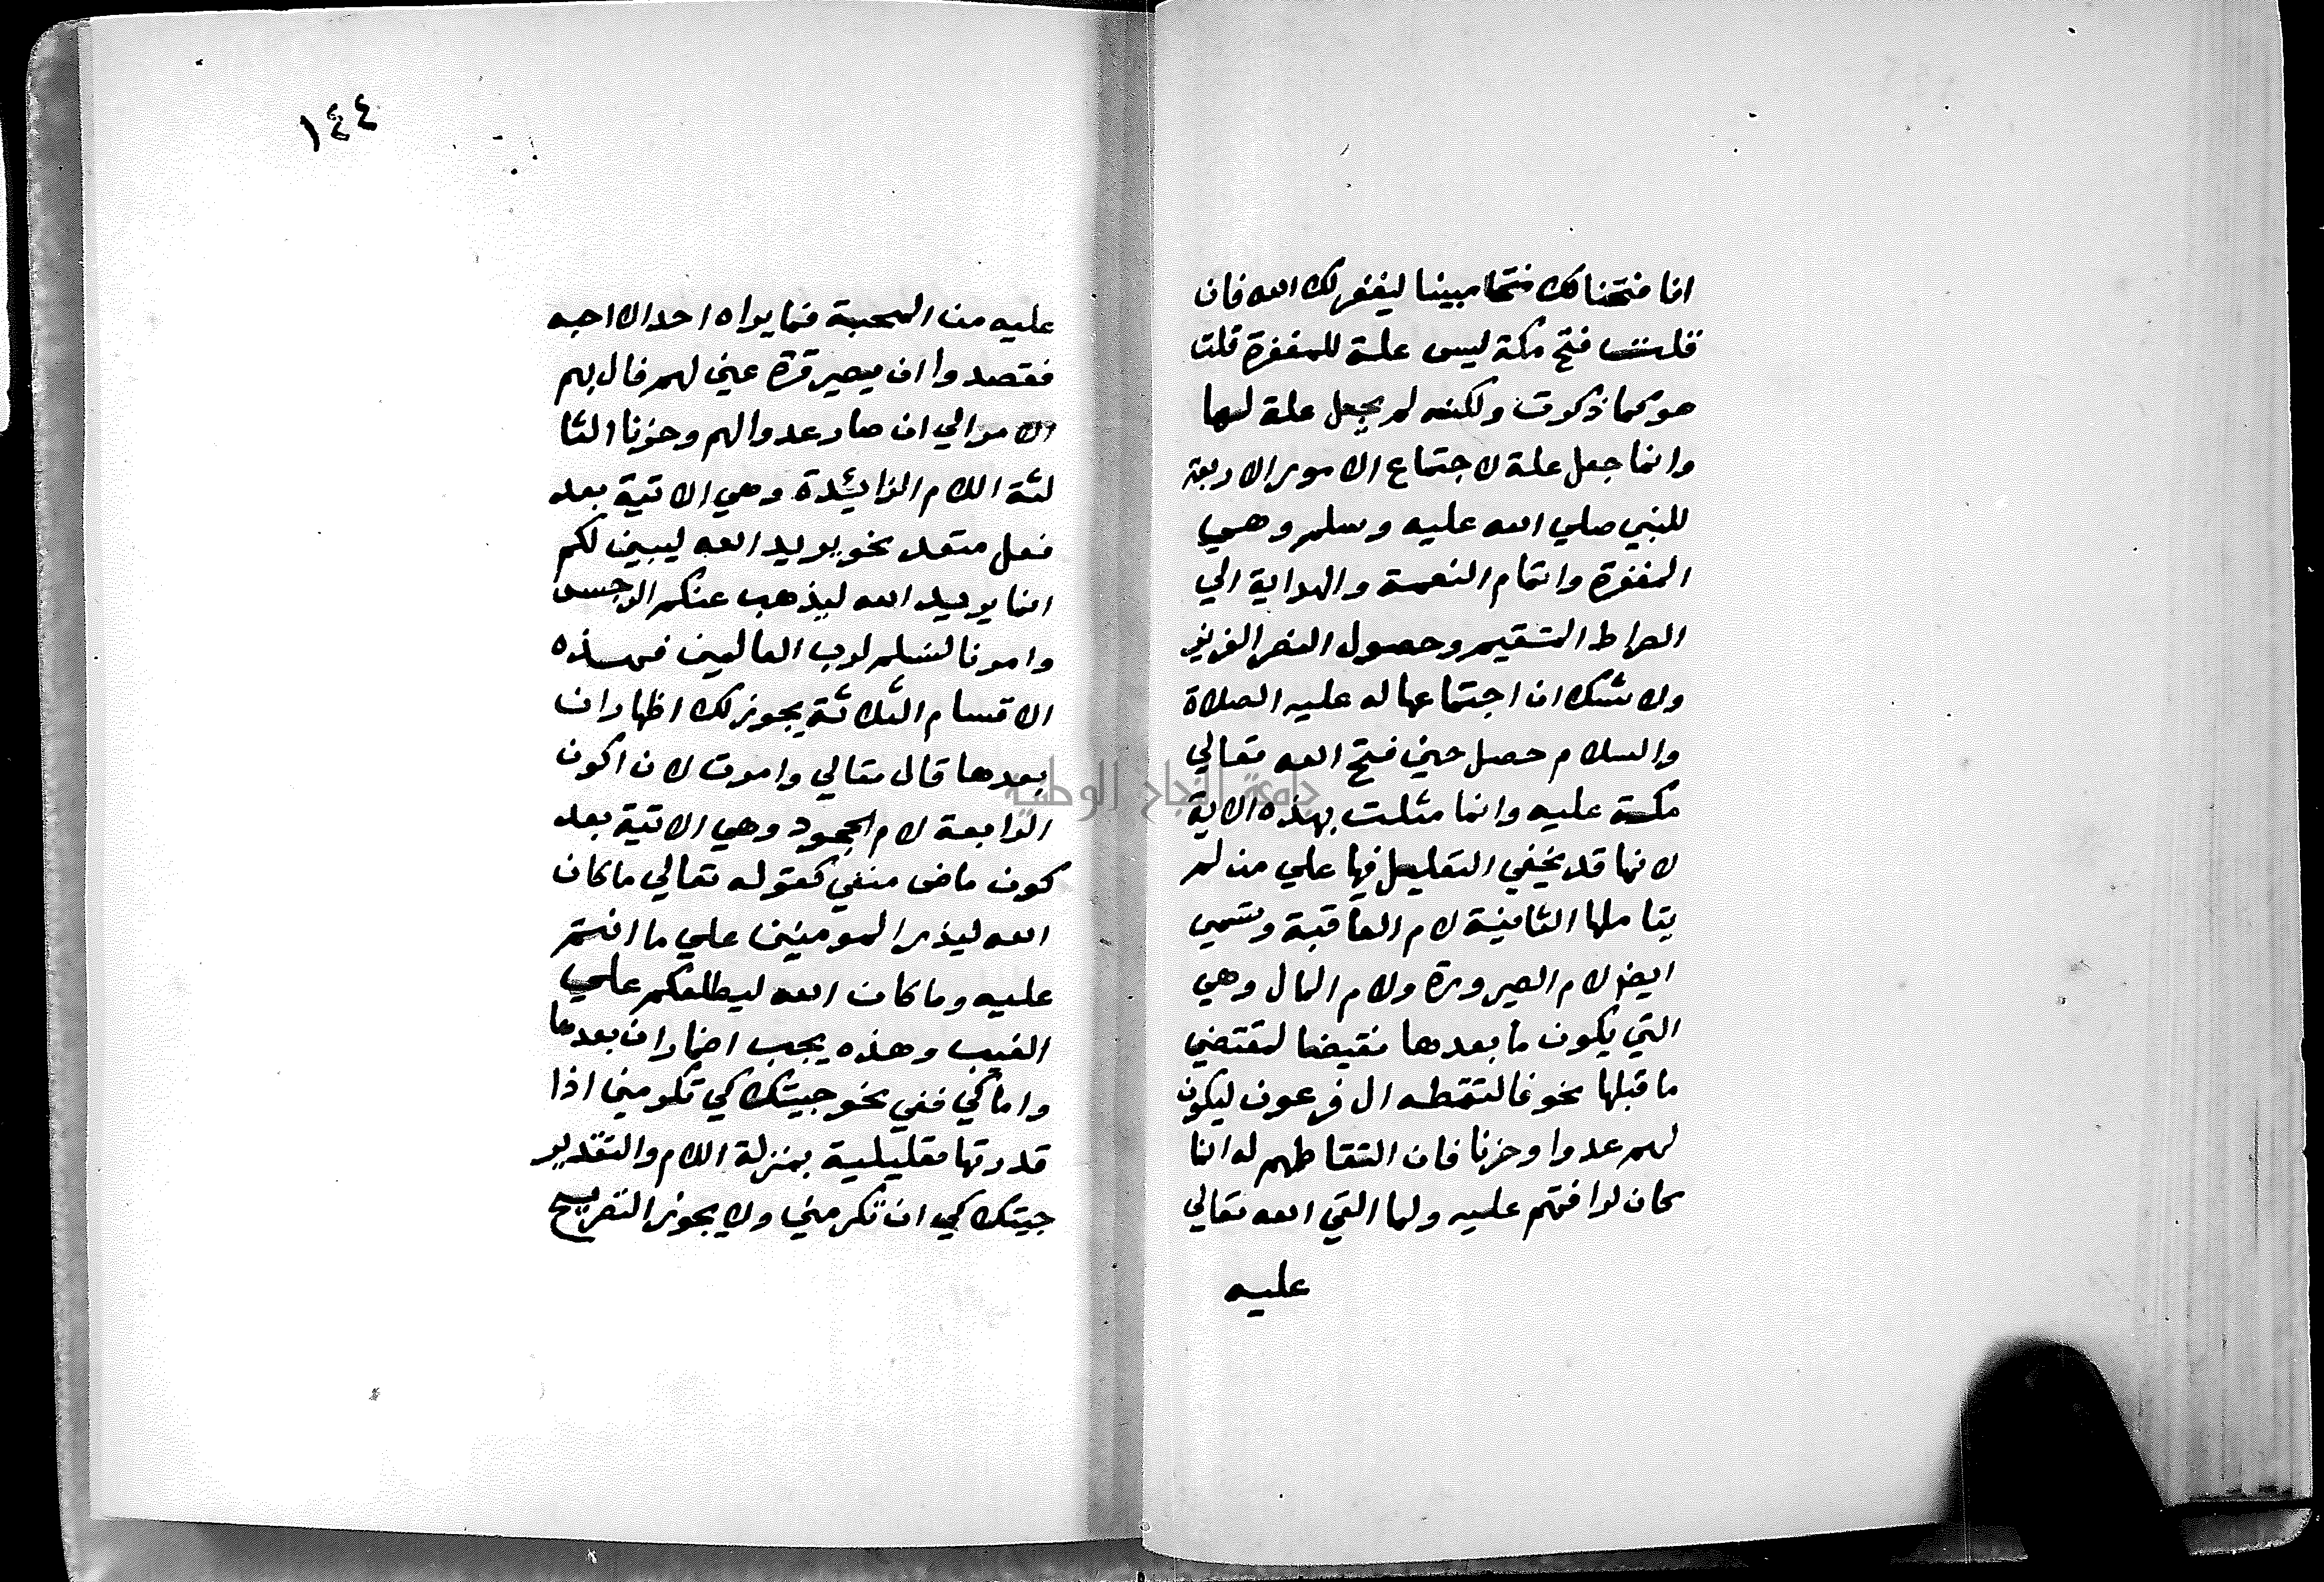 انا فتحنا لك فتحا مبينا ليغفر لك الله فان
قلت فتح مكة ليس علة للمغفرة قلت
هو كما ذكرت ولكنه لم يجعل علة لها
وانما جعل علة لاجتماع الامور الاربعة
للنبي صلي الله عليه وسلم وهي
المغفرة واتمام النعمة والهداية الي
الصراط المتقيم وحصول النصر العزيز
ولا شك ان اجتماعها له عليه الصلاة
والسلام حصل حين فتح الله تعالي
مكة عليه وانما مثلت بهذه الاية
لانها قد يخفي التعليل فيها علي من لم
يتاملها الثانية لام العاقبة وتسمي
ايضا لام الصيرورة ولام المال وهي
التي يكون ما بعدها نقيضا لمقتضي
ما قبلها نحو فالتقطه ال فرعون ليكون
لهم عدوا وحزنا فان التقاطهم له انما
كان لرافتهم عليه ولما القي الله تعالي
عليه
١٤٤
عليه من المحبة فما يراه احد الا احبه
فقصدوا ان يصير قرة عين لهم فال بهم
الامر الي ان صار عدوا لهم وحزنا الثا
لثة اللام الزايدة وهي الاتية بعد
فعل متعد نحو يريد الله ليبين لكم
انما يريد الله ليذهب عنكم الرجس
وامرنا لنسلم لرب العالمين فهذه
الاقسام الثلاثة يجوز لك اظهار ان
بعدها قال تعالي وامرت لان اكون
الرابعة لام الجحود وهي الاتية بعد
كون ماض منفي كقوله تعالي ما كان
الله ليذر المومنين علي ما انتم
عليه وما كان الله ليطلعكم علي
الغيب وهذه يجب اضمار ان بعدها
واما كي ففي نحو جيتك كي تكرمني اذا
قدرتها تعليلية بمنزلة اللام والتقدير
جيتك كي ان تكرمني ولا يجوز التصريح
جامعة النجاح الوطنية